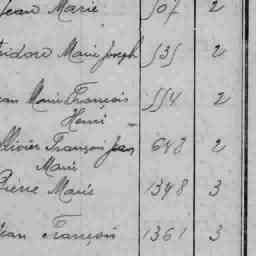 Jean Marie 507 2
Isidore Marie Joseph 535 2
Jean Marie François 554 2
Henri
Ollivier François Jean 642 2
Marie
Pierre Marie 1348 3
Jean François 1361 3